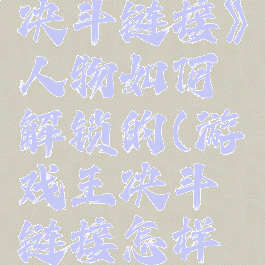 决斗链接》
人物如何
解锁的(游
戏王决斗
链接怎样